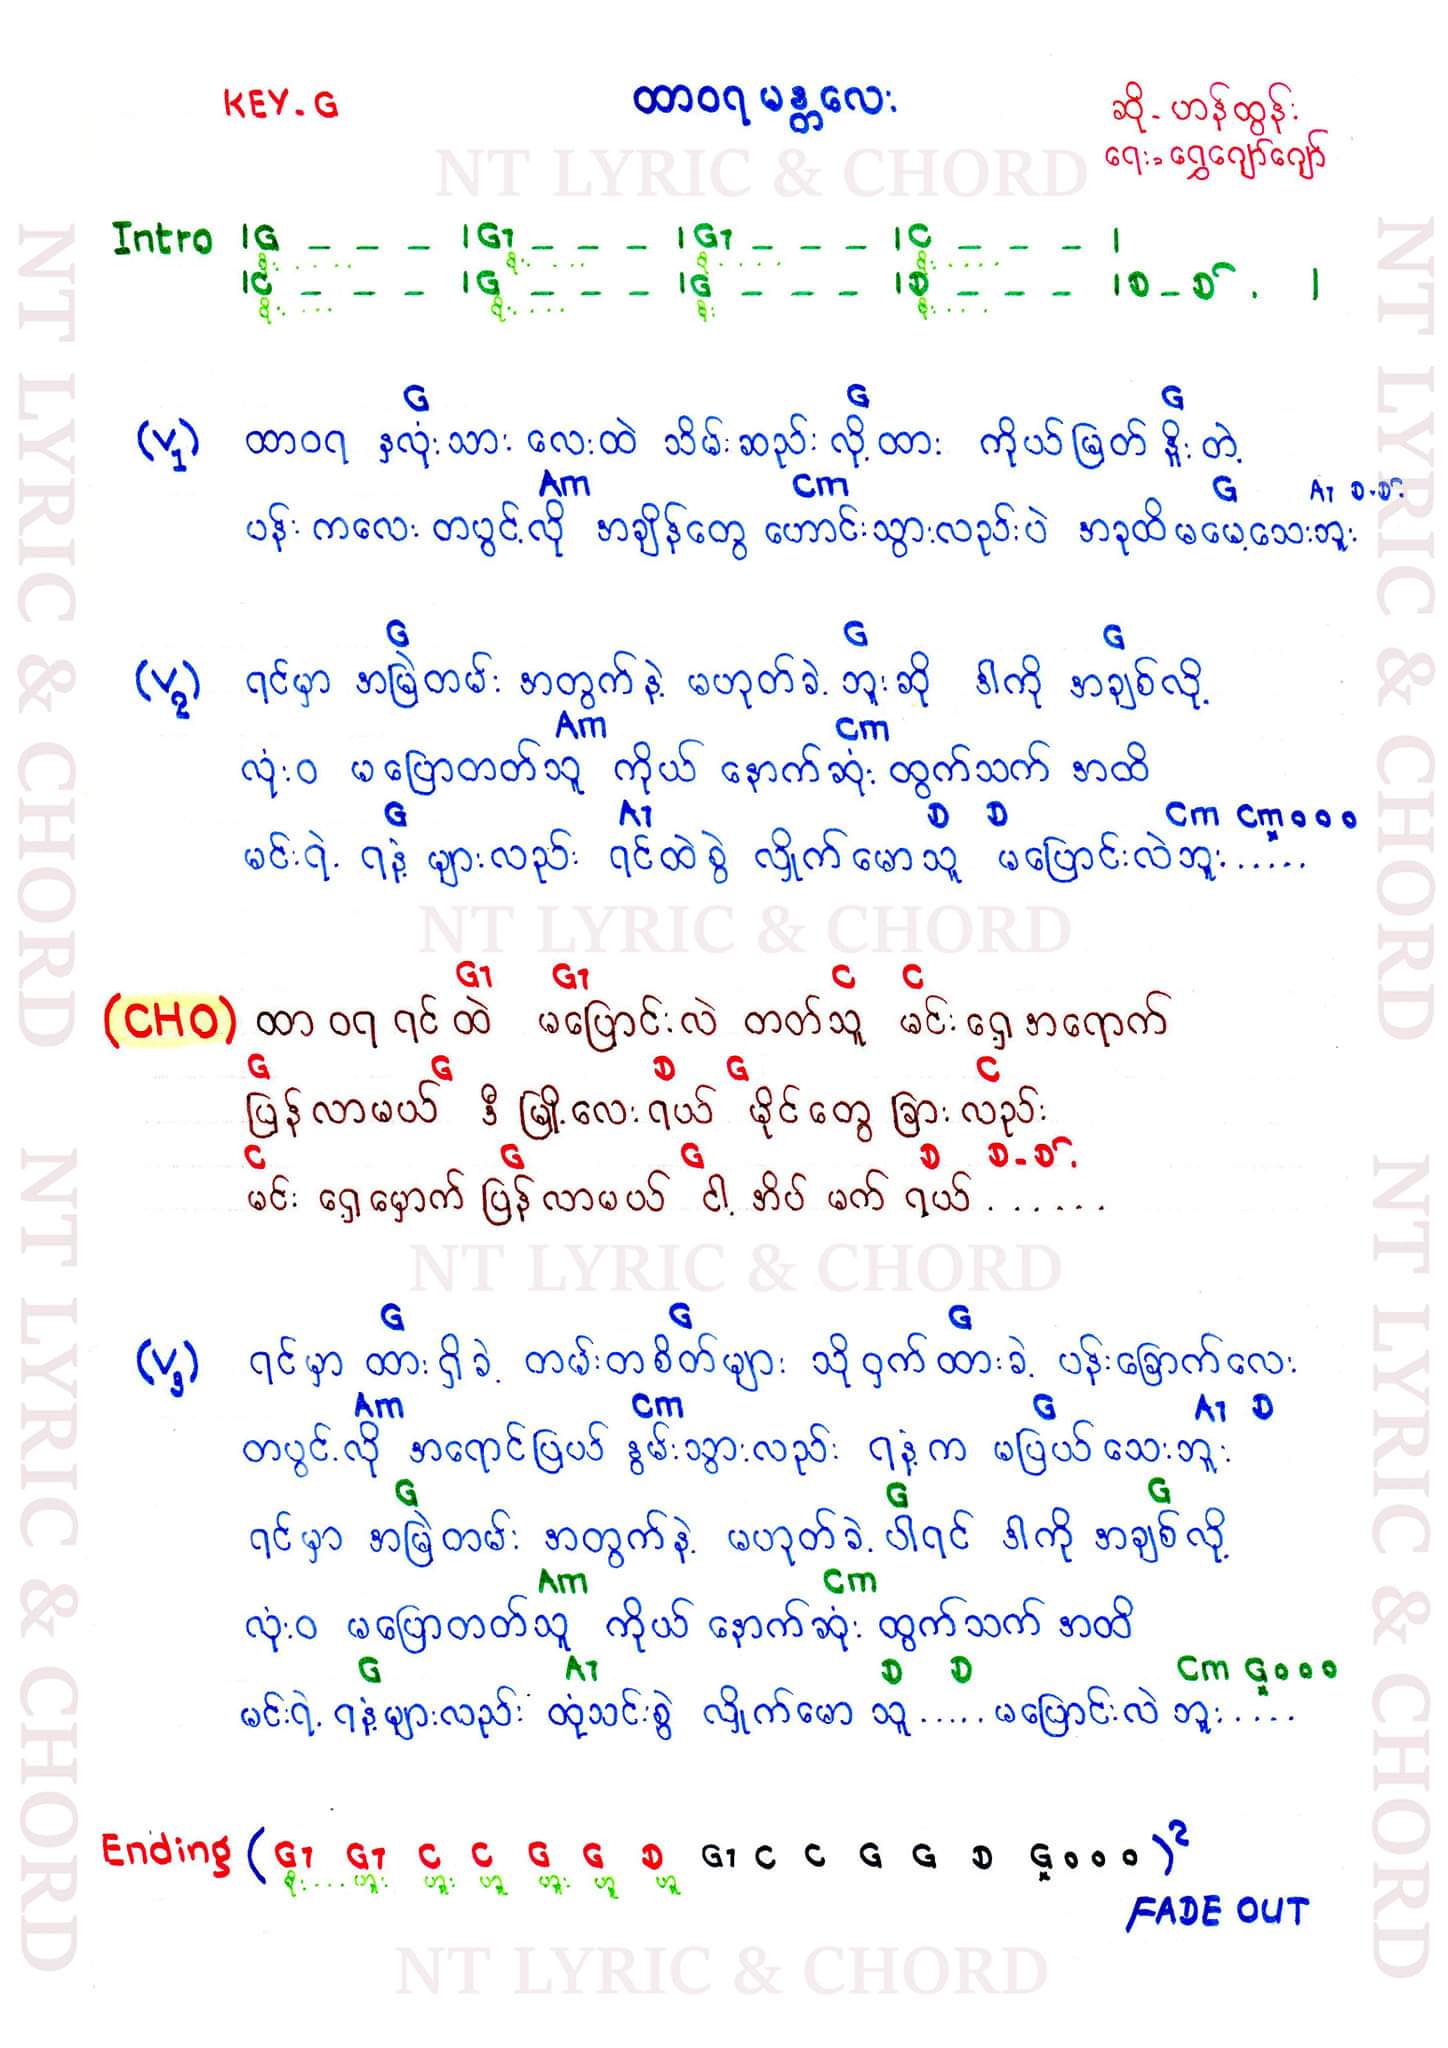 KEY. G
ထာဝရ မန္တလေး
ဆို - ဟန်ထွန်း
ရေး - ရွှေဂျော်ဂျော်
NT LYRIC & CHORD
Intro |G _ _ _ |G7 _ _ _ |G7 _ _ _ |C _ _ _ |
|C _ _ _ |G _ _ _ |G _ _ _ |D _ _ _ |D _ D . |
G G G
(V1) ထာဝရ နှလုံးသား လေးထဲ သိမ်းဆည်း လို့ထား ကိုယ်မြတ် နိုးတဲ့
Am Cm G A7 D-D
ပန်း ကလေး တပွင့်လို အချိန်တွေ ဟောင်းသွားလည်းပဲ အခုထိ မမေ့သေးဘူး
G G G
(V2) ရင်မှာ အမြဲတမ်း အတွက်နဲ့ မဟုတ်ခဲ့ ဘူးဆို ဒါကို အချစ်လို့
Am Cm
လုံးဝ မပြောတတ်သူ ကိုယ် နောက်ဆုံး ထွက်သက် အထိ
G A7 D D Cm Cm o o o
မင်းရဲ့ ရနံ့ များလည်း ရင်ထဲစွဲ လှိုက်မောသူ မပြောင်းလဲဘူး .....
NT LYRIC & CHORD
G7 G7 C C
(CHO) ထာဝရ ရင်ထဲ မပြောင်းလဲ တတ်သူ မင်းရှေ့အရောက်
G G D G C
ပြန်လာမယ် ဒီ မြို့လေးရယ် မိုင်တွေ ခြား လည်း
C G G D D-D .
မင်း ရှေ့မှောက် ပြန်လာမယ် ငါ့ အိပ် မက် ရယ် ......
NT LYRIC & CHORD
G G G
(V3) ရင်မှာ ထားရှိခဲ့ တမ်းတစိတ်များ သိုဝှက်ထားခဲ့ ပန်းခြောက်လေး
Am Cm G A7 D
တပွင့်လို အရောင်ပြယ် နွမ်းသွားလည်း ရနံ့က မပြယ်သေးဘူး
G G G
ရင်မှာ အမြဲတမ်း အတွက်နဲ့ မဟုတ်ခဲ့ ပါရင် ဒါကို အချစ်လို့
Am Cm
လုံးဝ မပြောတတ်သူ ကိုယ် နောက်ဆုံး ထွက်သက် အထိ
G A7 D D Cm G o o o
မင်းရဲ့ ရနံ့များလည်း ထုံသင်းစွဲ လှိုက်မော သူ ..... မပြောင်းလဲ ဘူး ....
Ending (G7 G7 C C G G D G7 C C G G D G o o o)2
FADE OUT
NT LYRIC & CHORD
NT LYRIC & CHORD
NT LYRIC & CHORD
NT LYRIC & CHORD
NT LYRIC & CHORD